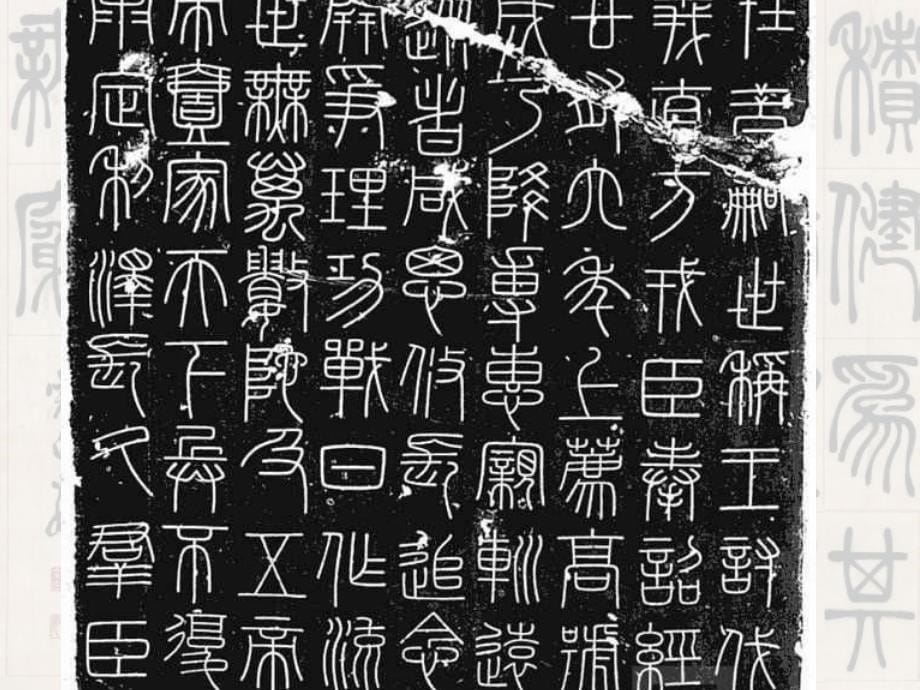 在昔嗣世稱王討伐
義直方戎臣奉詔經
廿有六年上薦高號
成乃降專惠親巡遠
從者咸思攸長追念
開爭理功戰日作流
世無萬數陀及五帝
帝壹家天下兵不復
康定利澤長久羣臣
積健為其